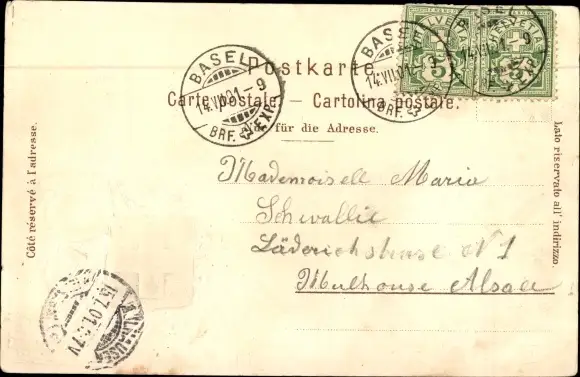 HELVETIA HELVETIA
5 5
BASEL
14.VII.01-9
BRF. EXP.
BASEL
14.VII.01-9
BRF.
BASEL
14.VII.01-9
EXP.
Postkarte
Carte postale. — Cartolina postale.
für die Adresse.
Côté réservé à l'adresse.
Lato riservato all' indirizzo.
Mademoiselle Maria
Schwallie
Läderichstrasse N 1
Mulhouse Alsace
15.7.01